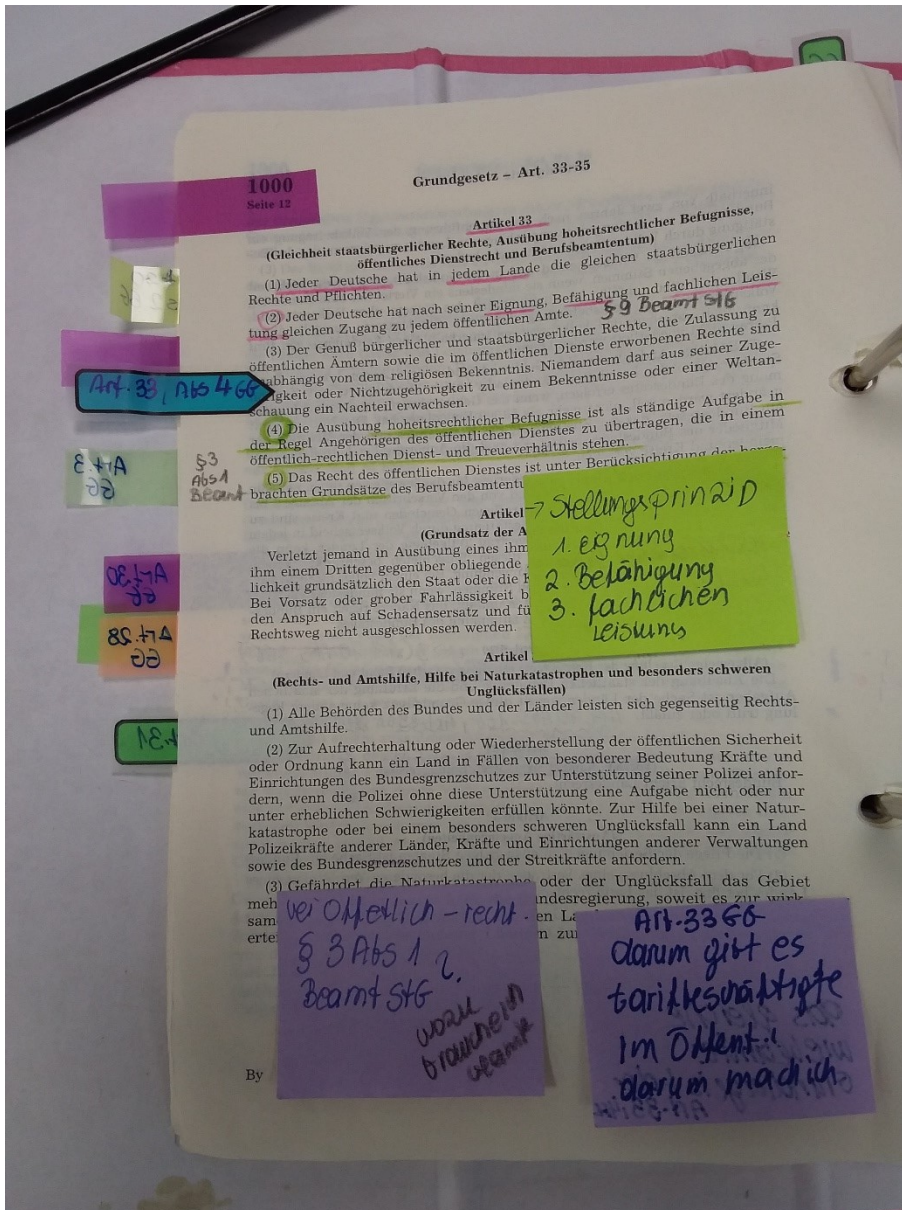 1000
Seite 12
Grundgesetz – Art. 33-35
Artikel 33
(Gleichheit staatsbürgerlicher Rechte, Ausübung hoheitsrechtlicher Befugnisse,
öffentliches Dienstrecht und Berufsbeamtentum)
(1) Jeder Deutsche hat in jedem Lande die gleichen staatsbürgerlichen
Rechte und Pflichten.
(2) Jeder Deutsche hat nach seiner Eignung, Befähigung und fachlichen Leis-
tung gleichen Zugang zu jedem öffentlichen Amte. §9 Beamt StG
(3) Der Genuß bürgerlicher und staatsbürgerlicher Rechte, die Zulassung zu
öffentlichen Ämtern sowie die im öffentlichen Dienste erworbenen Rechte sind
abhängig von dem religiösen Bekenntnis. Niemandem darf aus seiner Zuge-
igkeit oder Nichtzugehörigkeit zu einem Bekenntnisse oder einer Weltan-
schauung ein Nachteil erwachsen.
Art. 33, Abs 4 GG
(4) Die Ausübung hoheitsrechtlicher Befugnisse ist als ständige Aufgabe in
der Regel Angehörigen des öffentlichen Dienstes zu übertragen, die in einem
öffentlich-rechtlichen Dienst- und Treueverhältnis stehen.
§3
Abs1
Beamt
(5) Das Recht des öffentlichen Dienstes ist unter Berücksichtigung der
brachten Grundsätze des Berufsbeamtentu
Art.3
GG
Artikel
(Grundsatz der A
Verletzt jemand in Ausübung eines ihm
ihm einem Dritten gegenüber obliegende
lichkeit grundsätzlich den Staat oder die K
Bei Vorsatz oder grober Fahrlässigkeit b
den Anspruch auf Schadensersatz und fü
Rechtsweg nicht ausgeschlossen werden.
→ Stellungsprinzip
1. eignung
2. Befähigung
3. fachlichen
Leistung
Art.30
GG
Art.28
GG
Artikel
(Rechts- und Amtshilfe, Hilfe bei Naturkatastrophen und besonders schweren
Unglücksfällen)
(1) Alle Behörden des Bundes und der Länder leisten sich gegenseitig Rechts-
und Amtshilfe.
(2) Zur Aufrechterhaltung oder Wiederherstellung der öffentlichen Sicherheit
oder Ordnung kann ein Land in Fällen von besonderer Bedeutung Kräfte und
Einrichtungen des Bundesgrenzschutzes zur Unterstützung seiner Polizei anfor-
dern, wenn die Polizei ohne diese Unterstützung eine Aufgabe nicht oder nur
unter erheblichen Schwierigkeiten erfüllen könnte. Zur Hilfe bei einer Natur-
katastrophe oder bei einem besonders schweren Unglücksfall kann ein Land
Polizeikräfte anderer Länder, Kräfte und Einrichtungen anderer Verwaltungen
sowie des Bundesgrenzschutzes und der Streitkräfte anfordern.
(3) Gefährdet die Naturkatastrophe oder der Unglücksfall das Gebiet
meh ndesregierung, soweit es zur wirk-
sam en La
erte n zu
bei Öffetlich - recht.
§ 3 Abs 1
Beamt StG ?
wozu
brauche ich
beamte
Art. 33 GG
darum gibt es
tarifbeschäftigte
im Öffent.!
darum mach ich
By